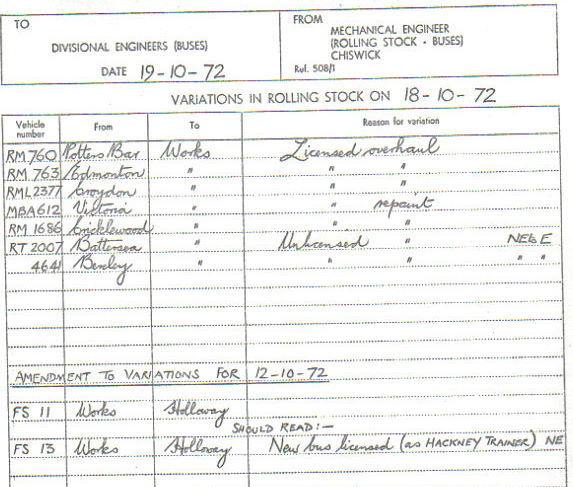 TO
DIVISIONAL ENGINEERS (BUSES)
DATE 19-10-72
FROM
MECHANICAL ENGINEER
(ROLLING STOCK - BUSES)
CHISWICK
Ref. 508/1
VARIATIONS IN ROLLING STOCK ON 18-10-72
Vehicle number From To Reason for variation
RM 760 Potters Bar Works Licensed overhaul
RM 763 Edmonton " " "
RML 2377 Croydon " " "
MBA 612 Victoria " " repaint
RM 1686 Cricklewood " " "
RT 2007 Battersea " Unlicensed " NE&E
4641 Bexley " " " " "
AMENDMENT TO VARIATIONS FOR 12-10-72
FS 11 Works Holloway
SHOULD READ:—
FS 13 Works Holloway New bus licensed (as HACKNEY TRAINER) NE